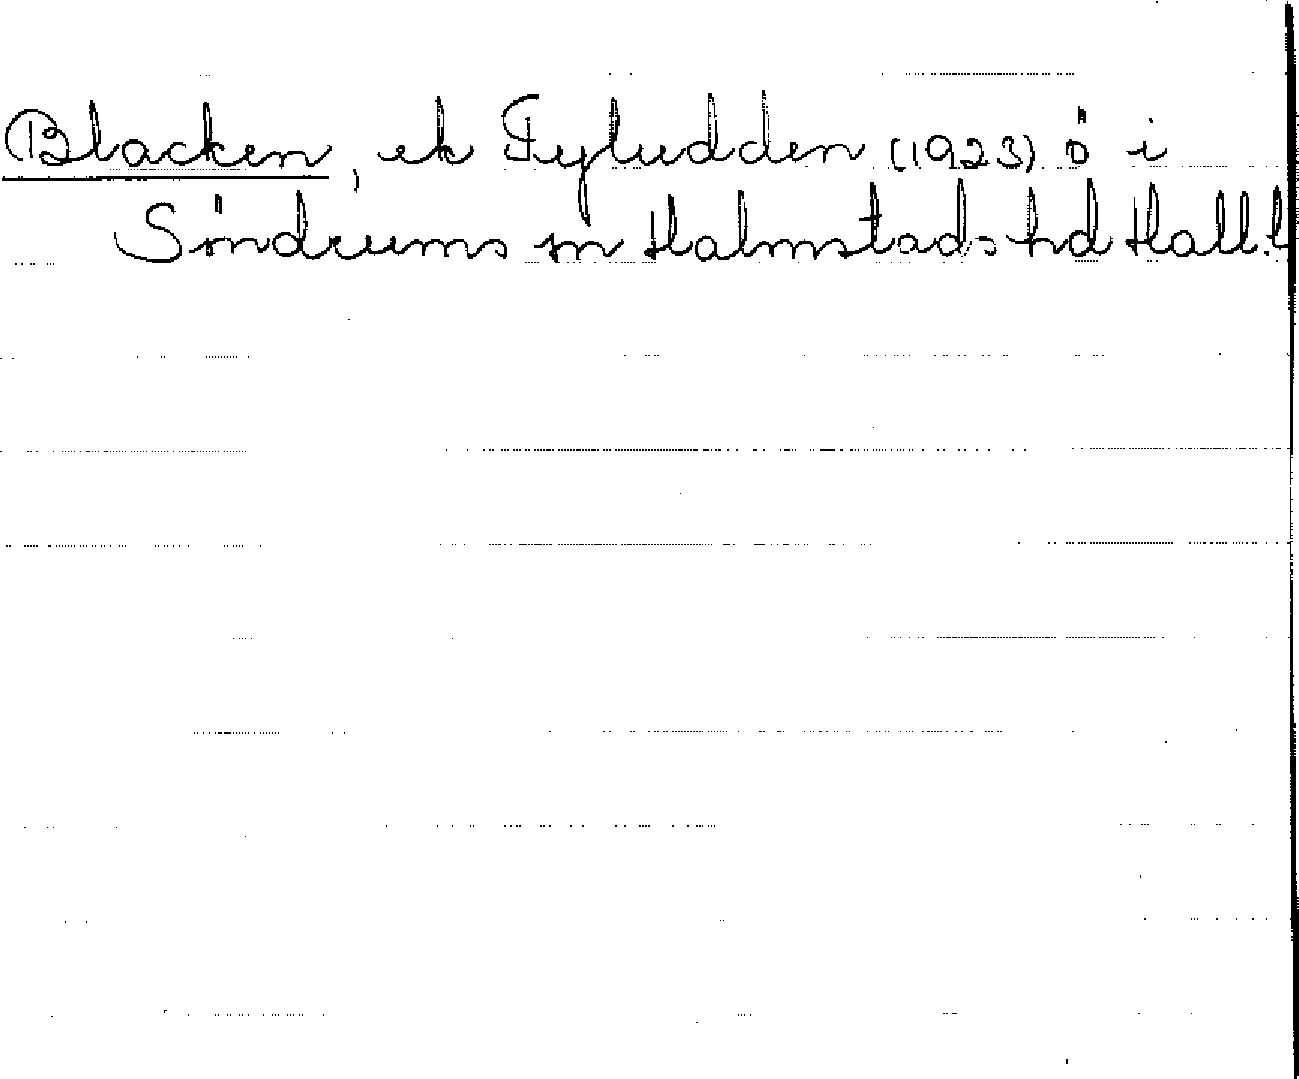 Blacken, ek Fyludden (1923) ö i
Söndrums sn Halmstads hd Hall.l